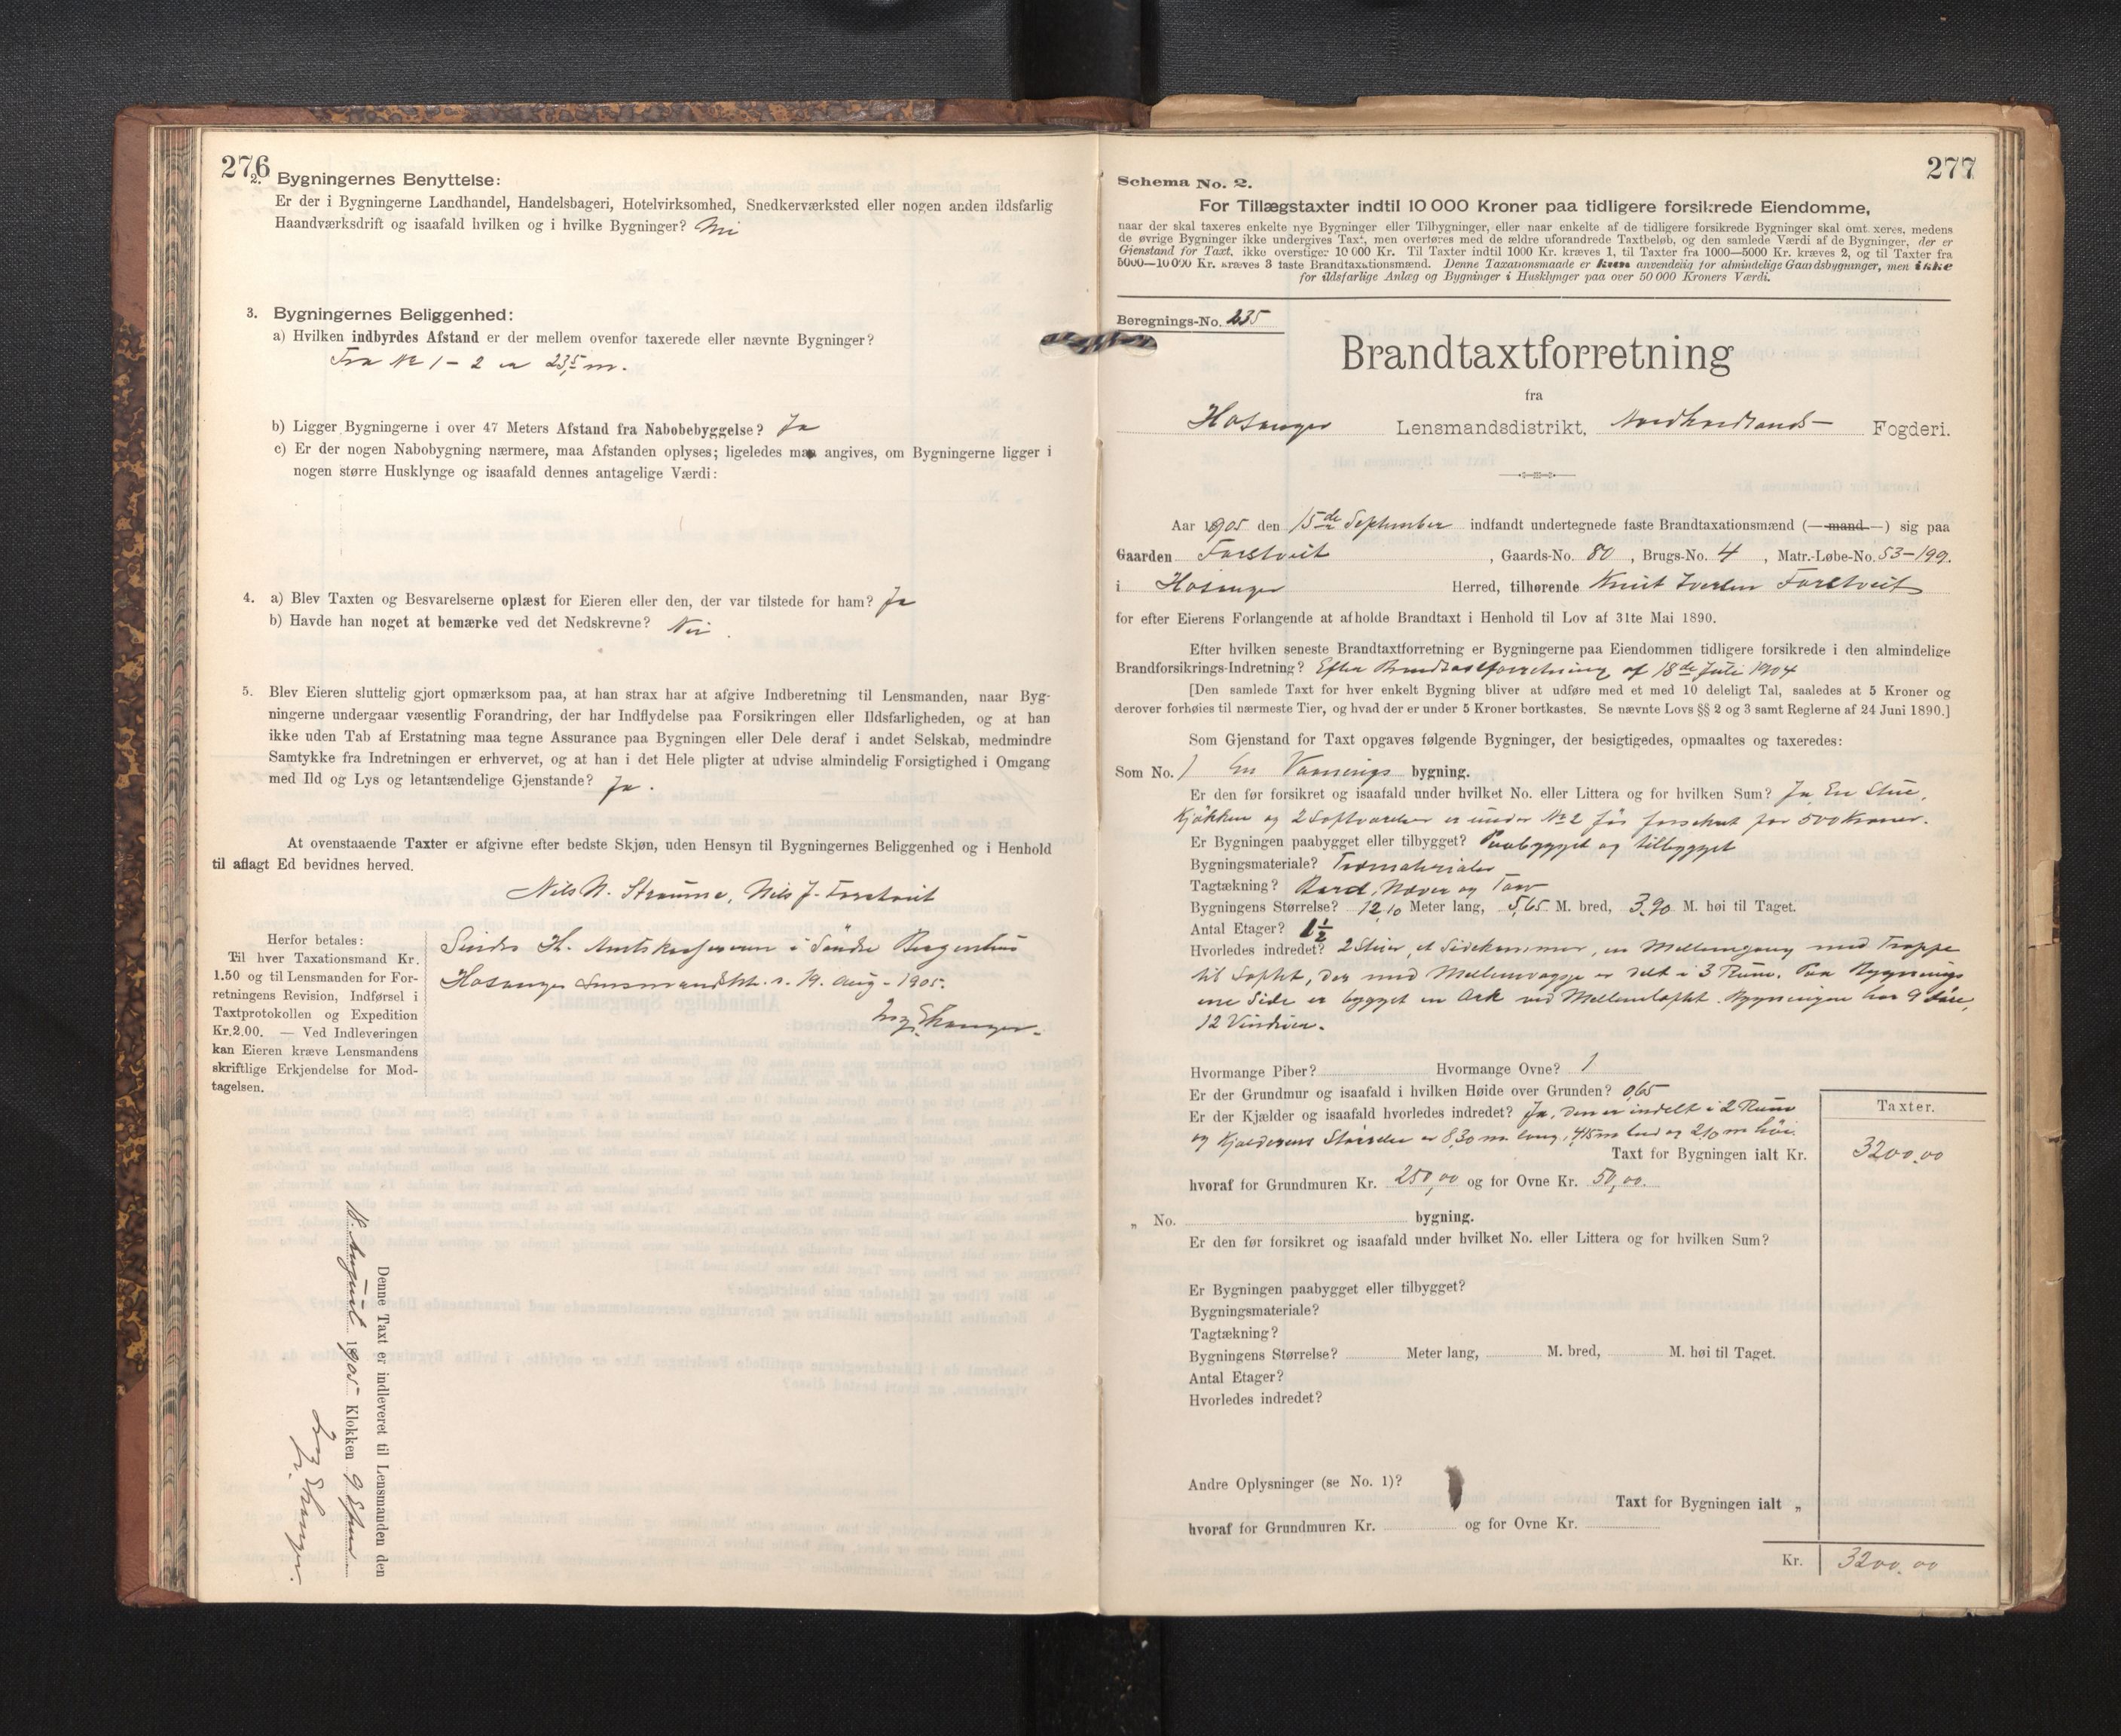 276
2. Bygningernes Benyttelse:
Er der i Bygningerne Landhandel, Handelsbageri, Hotelvirksomhed, Snedkerværksted eller nogen anden ildsfarlig
Haandværksdrift og isaafald hvilken og i hvilke Bygninger? Nei
3. Bygningernes Beliggenhed:
a) Hvilken indbyrdes Afstand er der mellem ovenfor taxerede eller nævnte Bygninger?
Fra No 1 - 2 er 23,5 m.
b) Ligger Bygningerne i over 47 Meters Afstand fra Nabobebyggelse? Ja
c) Er der nogen Nabobygning nærmere, maa Afstanden oplyses; ligeledes maa angives, om Bygningerne ligger i
nogen større Husklynge og isaafald dennes antagelige Værdi:
4. a) Blev Taxten og Besvarelserne oplæst for Eieren eller den, der var tilstede for ham? Ja
b) Havde han noget at bemærke ved det Nedskrevne? Nei.
5. Blev Eieren sluttelig gjort opmærksom paa, at han strax har at afgive Indberetning til Lensmanden, naar Byg-
ningerne undergaar væsentlig Forandring, der har Indflydelse paa Forsikringen eller Ildsfarligheden, og at han
ikke uden Tab af Erstatning maa tegne Assurance paa Bygningen eller Dele deraf i andet Selskab, medmindre
Samtykke fra Indretningen er erhvervet, og at han i det Hele pligter at udvise almindelig Forsigtighed i Omgang
med Ild og Lys og letantændelige Gjenstande? Ja.
At ovenstaaende Taxter er afgivne efter bedste Skjøn, uden Hensyn til Bygningernes Beliggenhed og i Henhold
til aflagt Ed bevidnes herved.
Nils N. Straume, Nils J. Forstveit
Herfor betales:
Til hver Taxationsmand Kr.
1.50 og til Lensmanden for For-
retningens Revision, Indførsel i
Taxtprotokollen og Expedition
Kr. 2.00. — Ved Indleveringen
kan Eieren kræve Lensmandens
skriftlige Erkjendelse for Mod-
tagelsen.
Sendes Hr. Amtskassereren i Søndre Bergenhus
Hosanger Lensmandsktr. d. 19. Aug. - 1905.
Denne Taxt er indleveret til Lensmanden den
18. August 1905 Klokken 9
277
Schema No. 2.
For Tillægstaxter indtil 10 000 Kroner paa tidligere forsikrede Eiendomme,
naar der skal taxeres enkelte nye Bygninger eller Tilbygninger, eller naar enkelte af de tidligere forsikrede Bygninger skal omtaxeres, medens
de øvrige Bygninger ikke undergives Taxt, men overføres med de ældre uforandrede Taxtbeløb, og den samlede Værdi af de Bygninger, der er
Gjenstand for Taxt, ikke overstiger 10 000 Kr. Til Taxter indtil 1000 Kr. kræves 1, til Taxter fra 1000—5000 Kr. kræves 2, og til Taxter fra
5000—10 000 Kr. kræves 3 faste Brandtaxationsmænd. Denne Taxationsmaade er kun anvendelig for almindelige Gaardsbygninger, men ikke
for ildsfarlige Anlæg og Bygninger i Husklynger paa over 50 000 Kroners Værdi.
Beregnings-No. 235
Brandtaxtforretning
fra
Hosanger Lensmandsdistrikt, Nordhordlands- Fogderi.
Aar 1905 den 15de September indfandt undertegnede faste Brandtaxationsmænd (—mand—) sig paa
Gaarden Forstveit, Gaards-No. 80, Brugs-No. 4, Matr.-Løbe-No. 53-199.
i Hosanger Herred, tilhørende Knut Iversen Forstveit
for efter Eierens Forlangende at afholde Brandtaxt i Henhold til Lov af 31te Mai 1890.
Efter hvilken seneste Brandtaxtforretning er Bygningerne paa Eiendommen tidligere forsikrede i den almindelige
Brandforsikrings-Indretning? Efter Brandtaxtforretning af 18de Juli 1904
[Den samlede Taxt for hver enkelt Bygning bliver at udføre med et med 10 deleligt Tal, saaledes at 5 Kroner og
derover forhøies til nærmeste Tier, og hvad der er under 5 Kroner bortkastes. Se nævnte Lovs §§ 2 og 3 samt Reglerne af 24 Juni 1890.]
Som Gjenstand for Taxt opgaves følgende Bygninger, der besigtigedes, opmaaltes og taxeredes:
Som No. 1 En Vaanings bygning.
Er den før forsikret og isaafald under hvilket No. eller Littera og for hvilken Sum? Ja En Stue,
Kjøkken og 2 Loftværelser er under No 2 før forsikret for 500 Kroner.
Er Bygningen paabygget eller tilbygget? Paabygget og tilbygget
Bygningsmateriale? Træmaterialer
Tagtækning? Bord, Næver og Torv
Bygningens Størrelse? 12,10 Meter lang, 5,65 M. bred, 3,90 M. høi til Taget.
Antal Etager? 1½
Hvorledes indredet? 2 Stuer, et Sidekammer, en Mellemgang med Trappe
til Loftet, der med Mellemvægge er delt i 3 Rum. Paa Bygnings
ene Side er bygget en Ark ved Mellemloftet. Bygningen har 9 Døre,
12 Vinduer.
Hvormange Piber? Hvormange Ovne? 1
Er der Grundmur og isaafald i hvilken Høide over Grunden? 0,65
Er der Kjælder og isaafald hvorledes indredet? Ja, den er indelt i 2 Rum
og Kjælderens Størrelse er 8,30 m lang, 4,15 m bred og 2,10 m høi.
Taxter.
Taxt for Bygningen ialt Kr. 3200,00
hvoraf for Grundmuren Kr. 250,00 og for Ovne Kr. 50,00.
„ No. bygning.
Er den før forsikret og isaafald under hvilket No. eller Littera og for hvilken Sum?
Er Bygningen paabygget eller tilbygget?
Bygningsmateriale?
Tagtækning?
Bygningens Størrelse? Meter lang, M. bred, M. høi til Taget.
Antal Etager?
Hvorledes indredet?
Andre Oplysninger (se No. 1)?
Taxt for Bygningen ialt „
hvoraf for Grundmuren Kr. og for Ovne Kr.
Kr. 3200,00